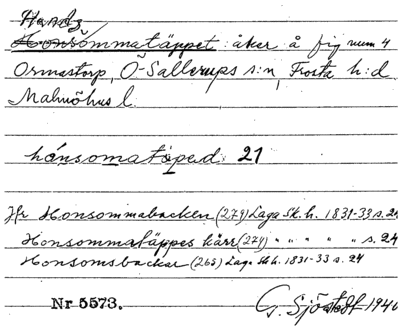 Honsommatäppet: åker å fig num 4
Ormastorp, Ö-Sallerups s:n, Frosta h:d
Malmöhus l.
hónsomatäped. 21
Jfr Honsommabacken (279) Laga Sk.h. 1831-33 s. 24
Honsommatäppes kärr (274) " " " " " s. 24
Honsomsbackar (265) Laga Sk.h. 1831-33 s. 24
Nr 5573.
G. Sjöstedt 1940